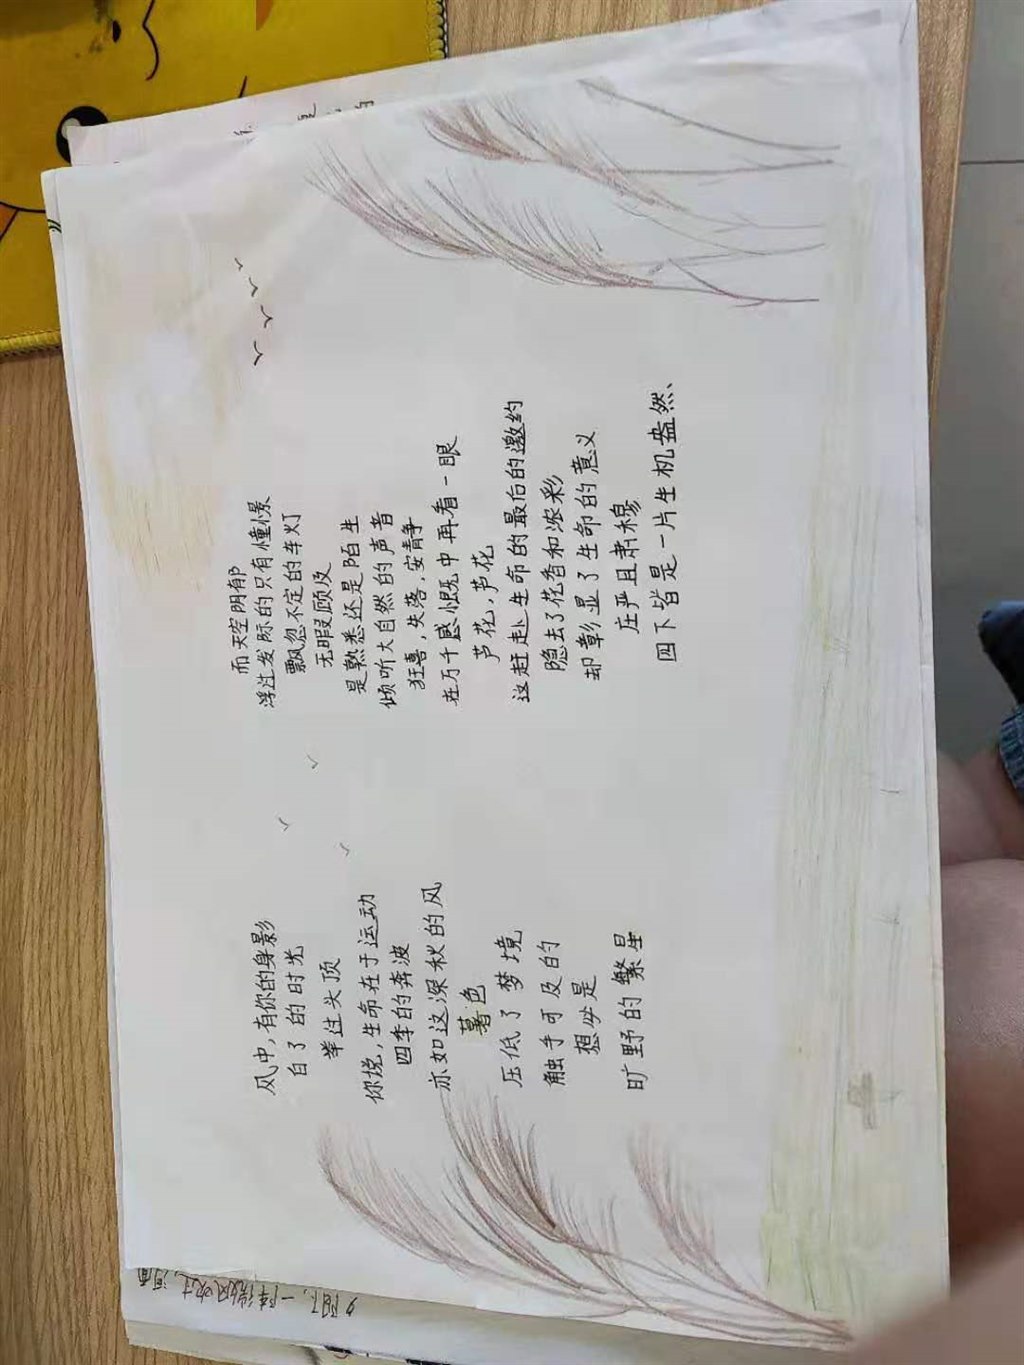 风中,有你的身影
白了的时光
举过头顶
你说,生命在于运动
四季的奔波
亦如这深秋的风
暮色
压低了梦境
触手可及的
想必是
旷野的繁星
而天空阴郁
浮过发际的只有憧憬
飘忽不定的车灯
无暇顾及
是熟悉还是陌生
倾听大自然的声音
狂喜,失落,安静
在万千感慨中再看一眼
芦花,芦花
这赶赴生命的最后的邀约
隐去了花香和浓彩
却彰显了生命的意义
庄严且肃穆
四下皆是一片生机盎然、
一阵微风吹过,